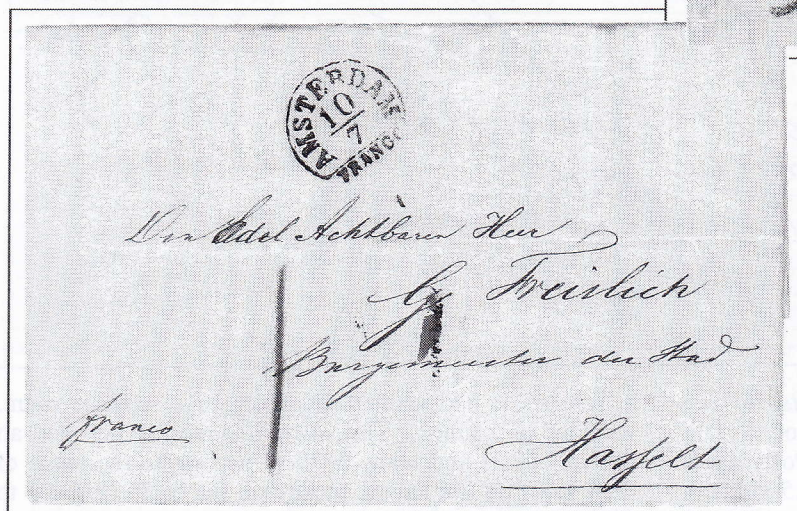 AMSTERDAM
10/7
FRANCO
Den Edel Achtbaren Heer
G. Freislich
Burgemeester der Stad
franco
Hasselt